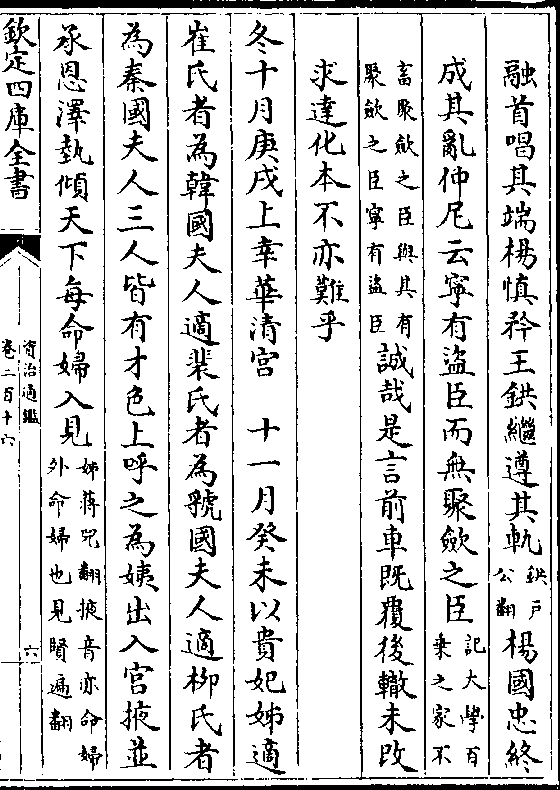 融首唱其端楊慎矜王鉷繼遵其軌鉷戶公翻楊國忠終
成其亂仲尼云寧有盜臣而無聚斂之臣記大學百乗之家不
畜聚斂之臣與其有聚斂之臣寧有盜臣誠哉是言前車既覆後轍未改
求達化本不亦難乎
冬十月庚戌上幸華清宮　十一月癸未以貴妃姊適
崔氏者為韓國夫人適裴氏者為虢國夫人適柳氏者
為秦國夫人三人皆有才色上呼之為姨出入宮掖並
承恩澤埶傾天下每命婦入見姊蔣兕翻掖音亦命婦外命婦也見賢遍翻
欽定四庫全書
資治通鑑
卷二百十六
六